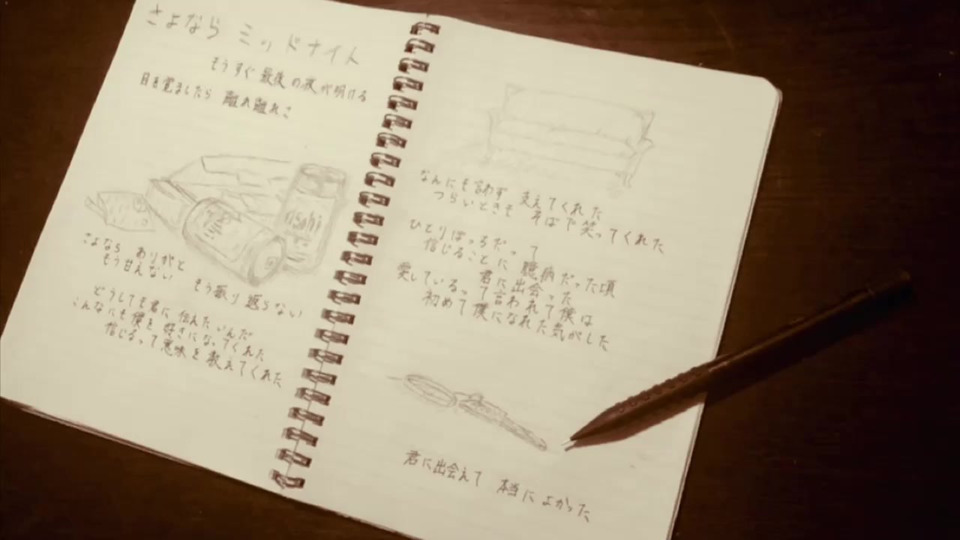 さよなら ミッドナイト
もうすぐ最後の夜が明ける
目を覚ましたら 離れ離れさ
Asahi
さよなら ありがと
もう甘えない もう振り返らない
どうしても君に 伝えたいんだ
こんなにも僕を 好きになってくれた
信じるって意味を 教えてくれた
なんにも言わず 支えてくれた
つらいときも そばで笑ってくれた
ひとりぼっちだって
信じることに 臆病だった頃
君に出会った
愛しているって言われて僕は
初めて僕になれた気がした
君に出会えて 本当によかった